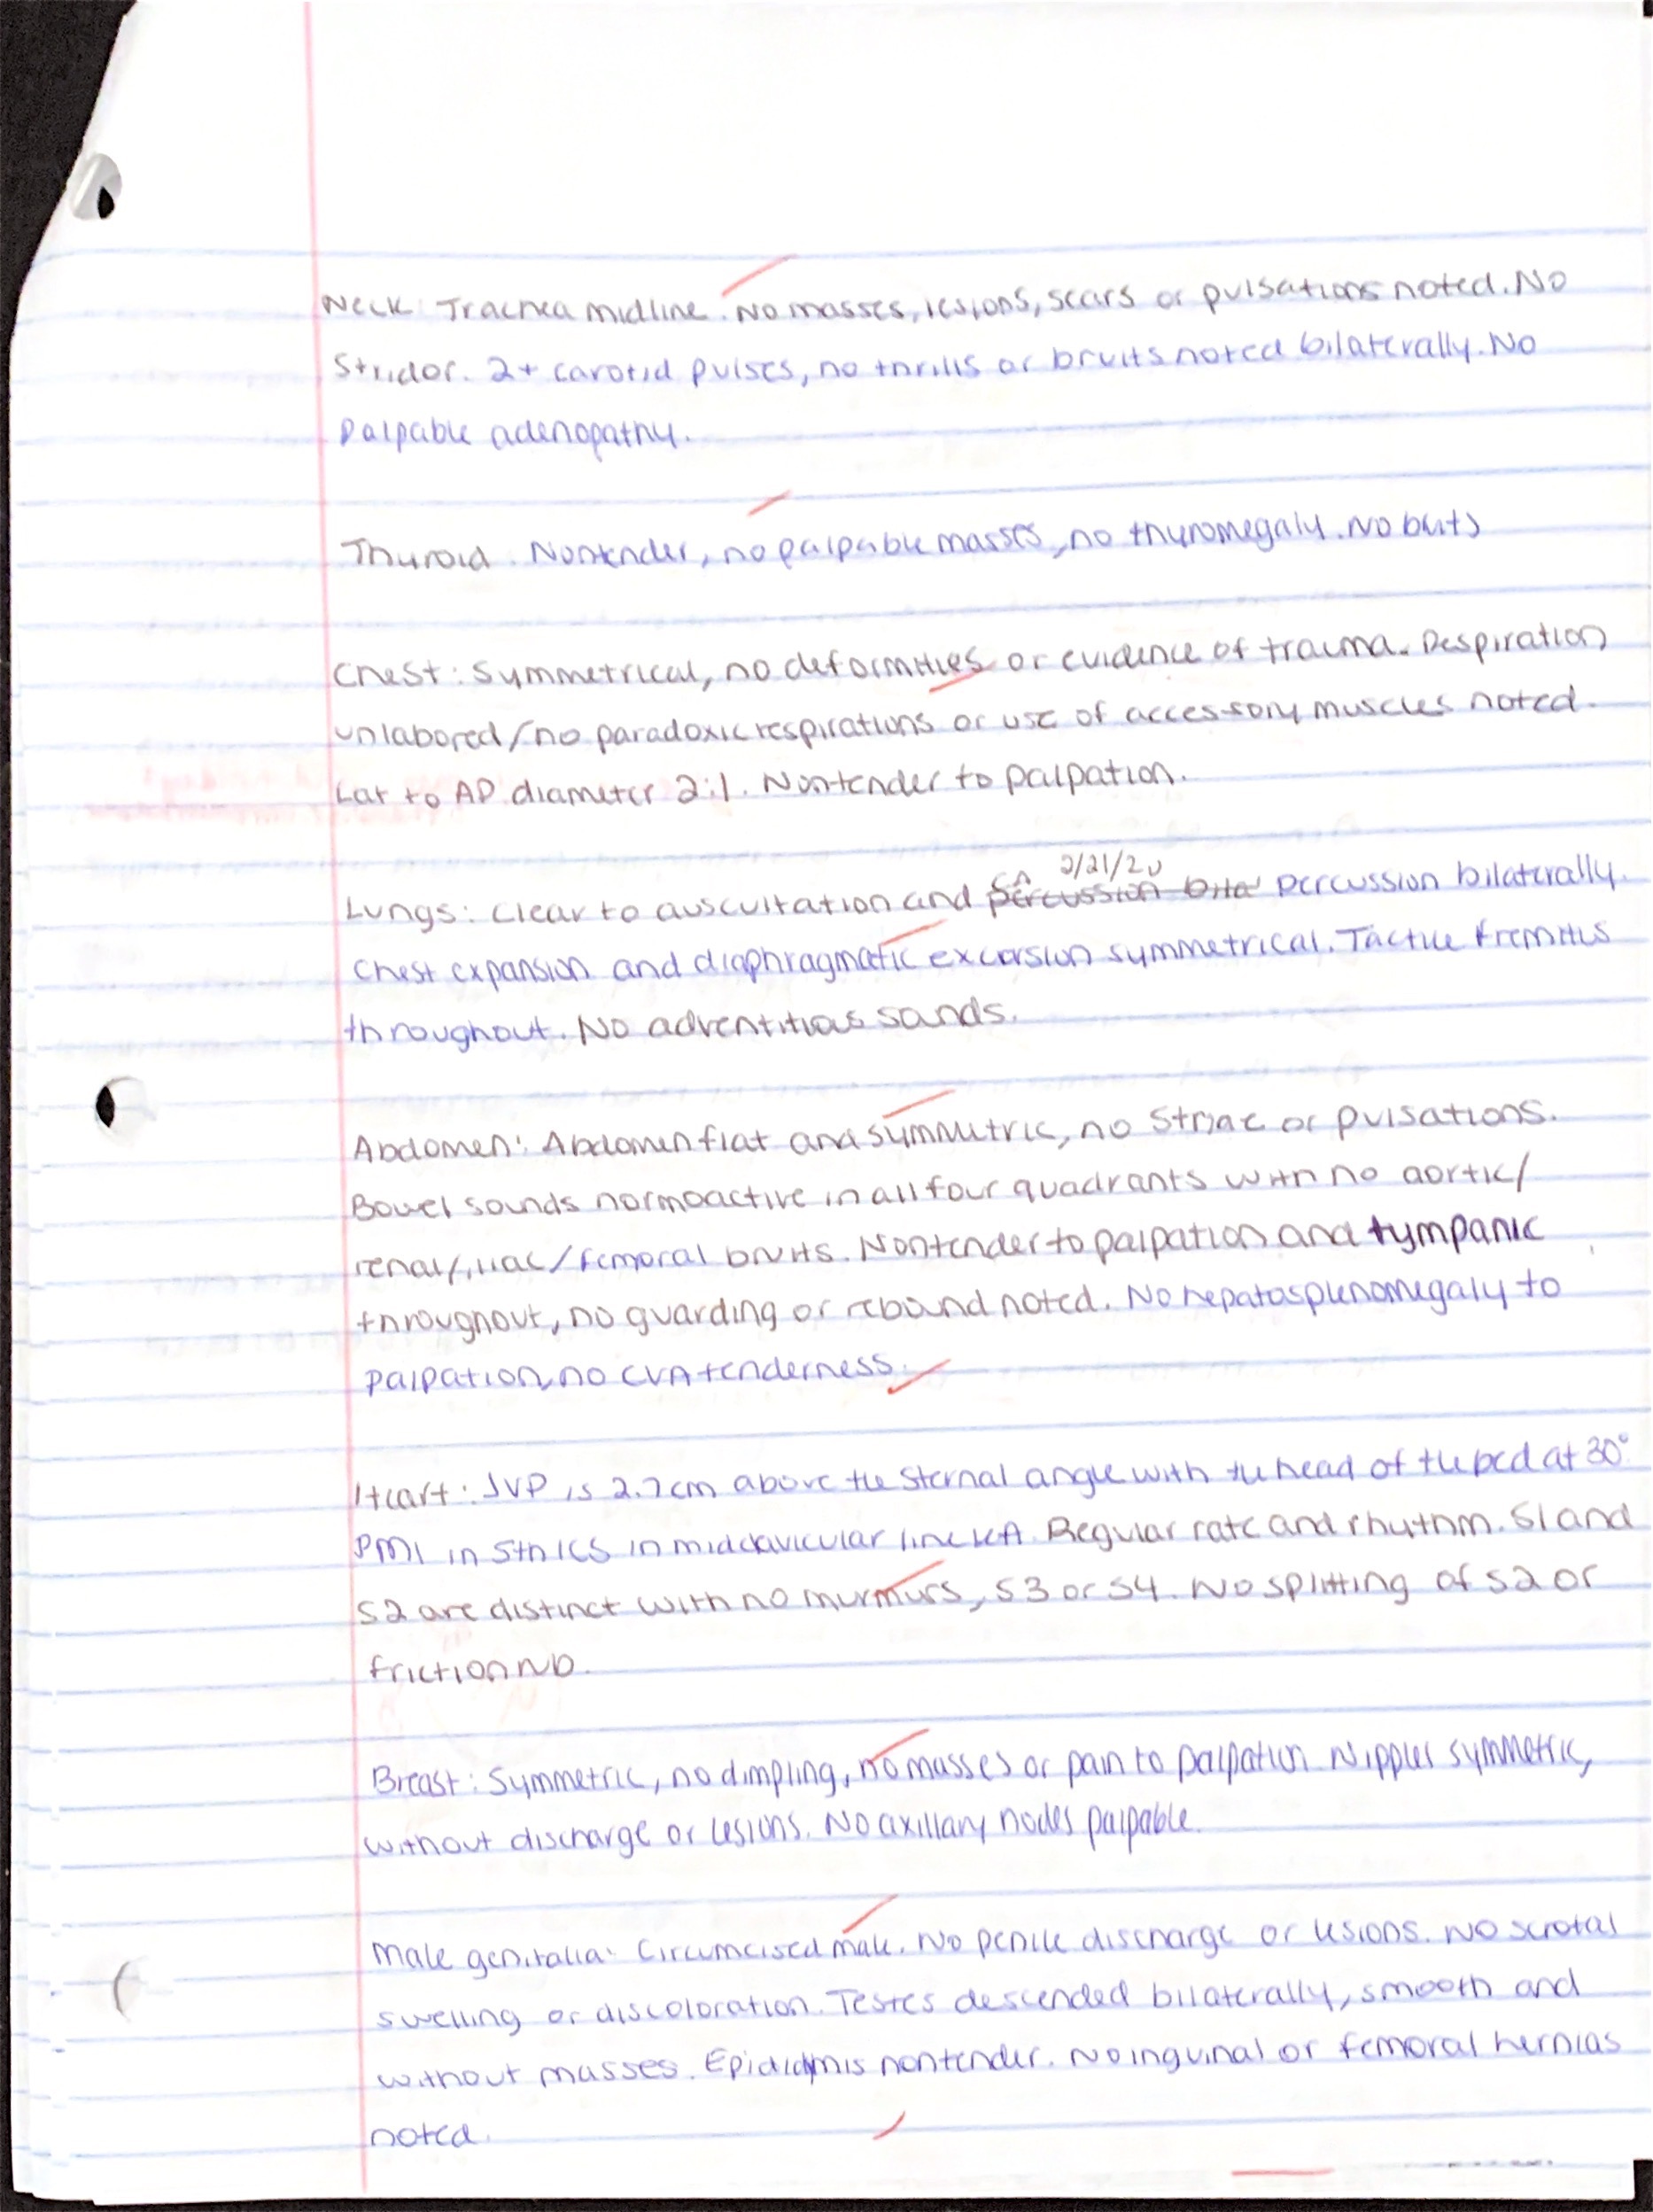 Neck: Trachea midline. No masses, lesions, scars or pulsations noted. No
Stridor. 2+ carotid pulses, no thrills or bruits noted bilaterally. No
palpable adenopathy.
Thyroid: Nontender, no palpable masses, no thyromegaly. No bruits
Chest: Symmetrical, no deformities or evidence of trauma. Respiration
unlabored/no paradoxic respirations or use of accessory muscles noted.
Lat to AP diameter 2:1. Nontender to palpation.
2/21/20
Lungs: Clear to auscultation and percussion bilat percussion bilaterally.
Chest expansion and diaphragmatic excursion symmetrical. Tactile fremitus
throughout. No adventitious sounds.
Abdomen: Abdomen flat and symmetric, no Striae or pulsations.
Bowel sounds normoactive in all four quadrants with no aortic/
renal/iliac/femoral bruits. Nontender to palpation and tympanic
throughout, no guarding or rebound noted. No hepatosplenomegaly to
palpation, no CVA tenderness.
Heart: JVP is 2.7cm above the Sternal angle with the head of the bed at 30°.
PMI in 5th ICS in midclavicular line left. Regular rate and rhythm. S1 and
S2 are distinct with no murmurs, S3 or S4. No splitting of S2 or
friction rub.
Breast: Symmetric, no dimpling, no masses or pain to palpation. Nipples symmetric,
without discharge or lesions. No axillary nodes palpable.
Male genitalia: Circumcised male. No penile discharge or lesions. No scrotal
swelling or discoloration. Testes descended bilaterally, smooth and
without masses. Epididymis nontender. No inguinal or femoral hernias
noted.